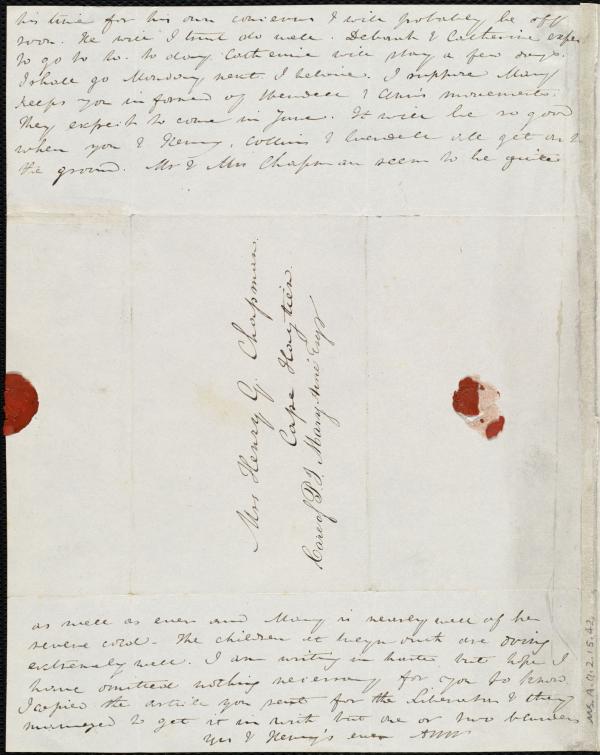 his time for his own concerns & will probably be off
soon. He will I trust do well. Deborah & Catherine expect
to go to to. to day. Catherine will stay a few days.
I shall go Monday next. I believe. I suppose Mary
keeps you informed of Wendell & Ann's movements.
They expect to come in June. It will be so good
when you & Henry, Collins & Wendell all get on to
the ground. Mr & Mrs Chapman seem to be quite
Mrs Henry G. Chapman.
Cape Haytien.
Care of P. J. Mary Anné Esqr
as well as ever and Mary is nearly well of her
severe cold. The children at Weymouth are doing
extremely well. I am writing in haste but hope I
have omitted nothing necessary for you to know
I copied the article you sent for the Liberator & they
managed to get it in with but one or two blunders
Yrs & Henry's ever AWW
Ms. A.9.2.15.42